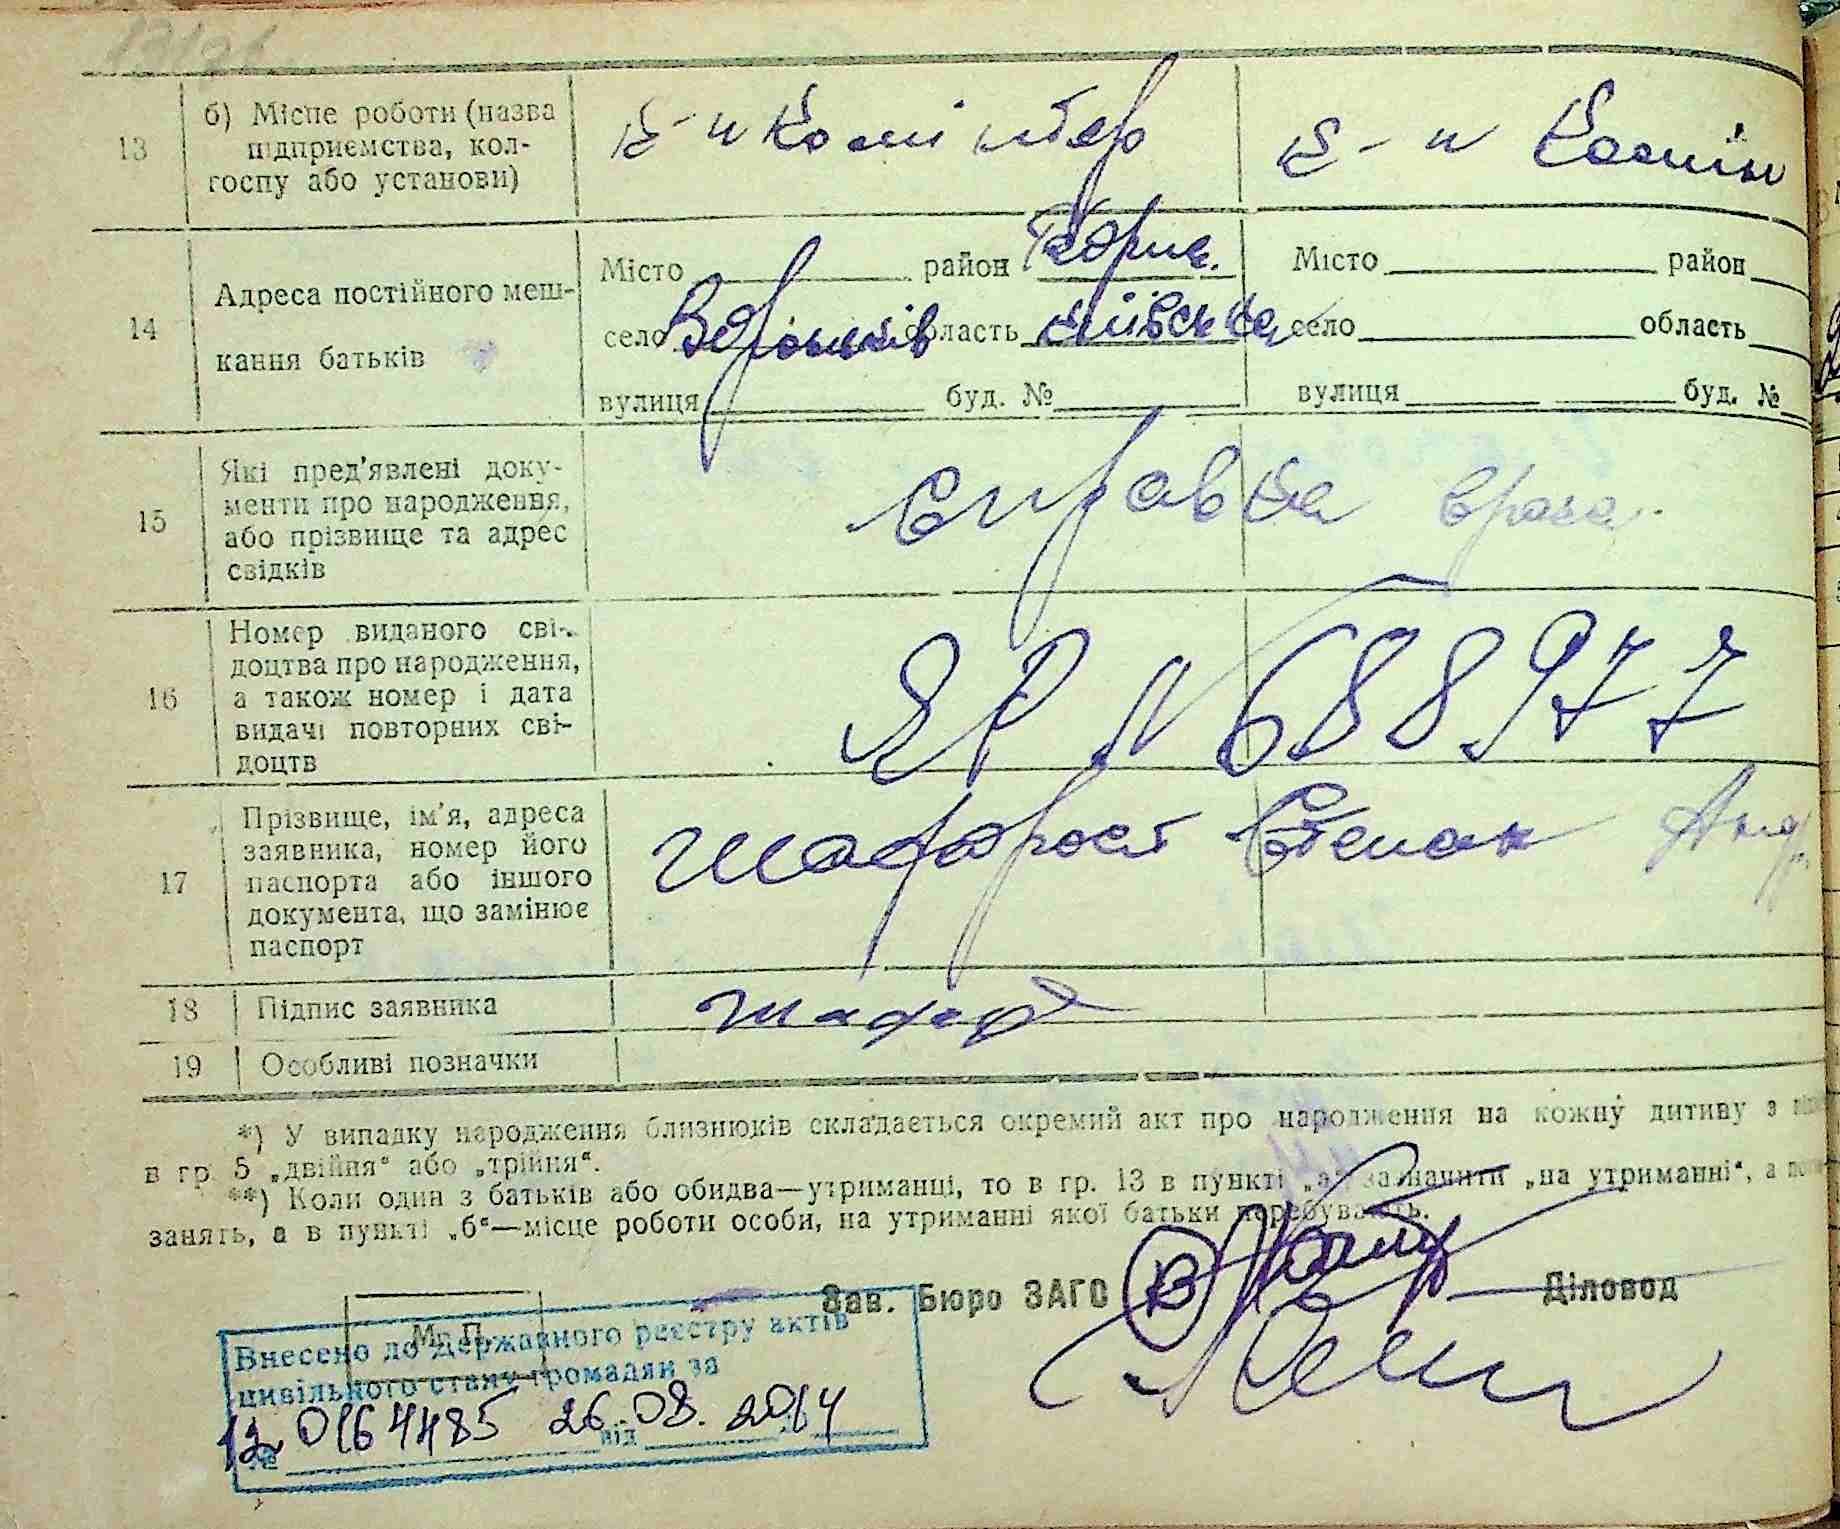 13
б) Місце роботи (назва
підприємства, кол-
госпу або установи)
к-п Комінтер
к-п Комін
14
Адреса постійного меш-
кання батьків
Місто район
село Вороньків область Київська
вулиця буд. №
Місто район
село область
вулиця буд. №
15
Які пред'явлені доку-
менти про народження,
або прізвище та адрес
свідків
справка врача
16
Номер виданого сві-
доцтва про народження,
а також номер і дата
видачі повторних сві-
доцтв
ЯР N 688977
17
Прізвище, ім'я, адреса
заявника, номер його
паспорта або іншого
документа, що замінює
паспорт
Шафорост Степан Анд
18
Підпис заявника
19
Особливі позначки
*) У випадку народження близнюків складається окремий акт про народження на кожну дитину з
в гр. 5 „двійня“ або „трійня“.
**) Коли один з батьків або обидва—утриманці, то в гр. 13 в пункті „а“ зазначити „на утриманні“, а
занять, а в пункті „б“—місце роботи особи, на утриманні якої батьки перебувають.
Зав. Бюро ЗАГС
Діловод
М. П.
Внесено до Державного реєстру актів
цивільного стану громадян за
№ 0164485 від 26.08.2014